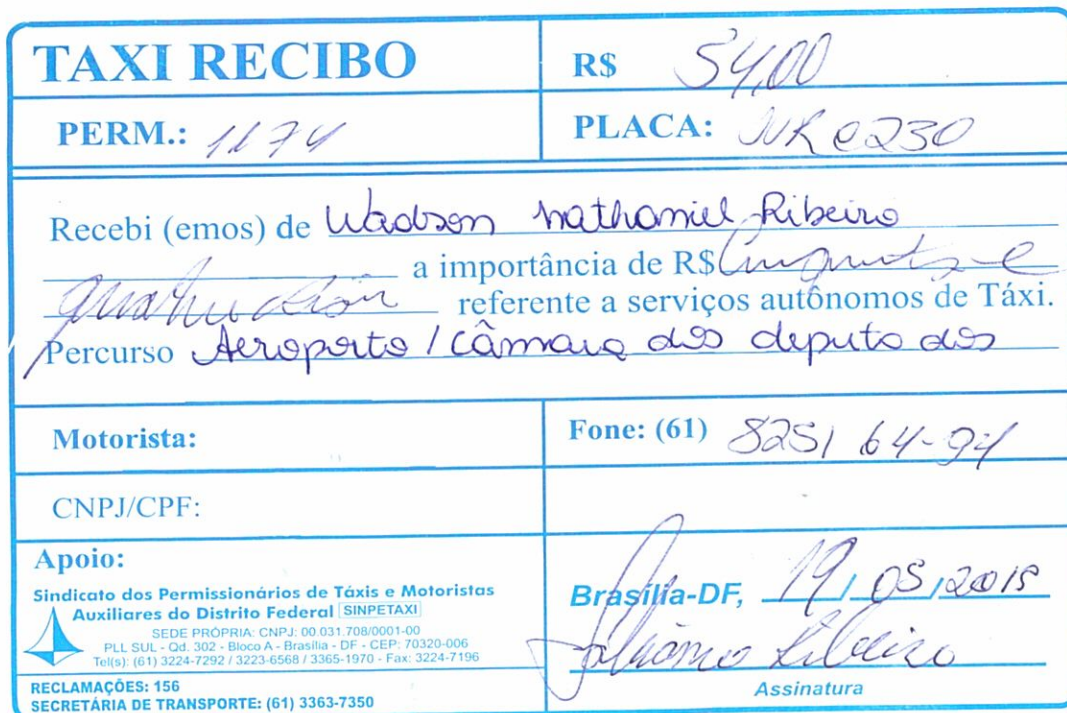 TAXI RECIBO
R$ 54,00
PERM.: 1174
PLACA: JKR 0230
Recebi (emos) de Wadson Nathaniel Ribeiro
a importância de R$ Cinquenta e
quatro reais referente a serviços autônomos de Táxi.
Percurso Aeroporto / Câmara dos deputados
Motorista:
Fone: (61) 8251 64-94
CNPJ/CPF:
Apoio:
Sindicato dos Permissionários de Táxis e Motoristas
Auxiliares do Distrito Federal SINPETAXI
SEDE PRÓPRIA: CNPJ: 00.031.708/0001-00
PLL SUL - Qd. 302 - Bloco A - Brasília - DF - CEP: 70320-006
Tel(s): (61) 3224-7292 / 3223-6568 / 3365-1970 - Fax: 3224-7196
RECLAMAÇÕES: 156
SECRETÁRIA DE TRANSPORTE: (61) 3363-7350
Brasília-DF, 19 / 05 / 2015
Ribeiro
Assinatura